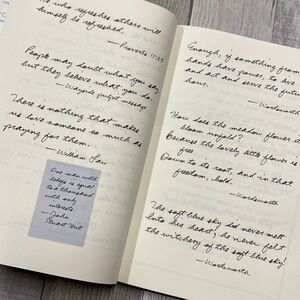 who refreshes others will
himself be refreshed.
— Proverbs 11:25
People may doubt what you say,
but they believe what you do.
— Wayside pulpit message
There is nothing that makes
us love someone so much as
praying for them.
— William Law
One man with
beliefs is equal
to a thousand
with only
interests.
— John
Stuart Mill
Enough, if something from
hands have power, to live
and act and serve the future
hour.
— Wordsworth
How does the meadow flower it
bloom unfold?
Because the lovely little flower is
free
Down to its root, and in that
freedom, bold.
— Wordsworth
The soft blue sky did never melt
Into his heart; he never felt
the witchery of the soft blue sky!
— Wordsworth